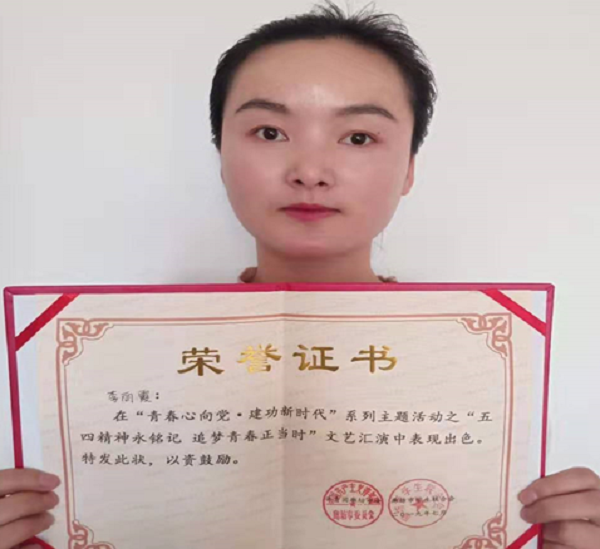 荣誉证书
李丽霞：
在“青春心向党·建功新时代”系列主题活动之“五
四精神永铭记 追梦青春正当时”文艺汇演中表现出色。
特发此状，以资鼓励。